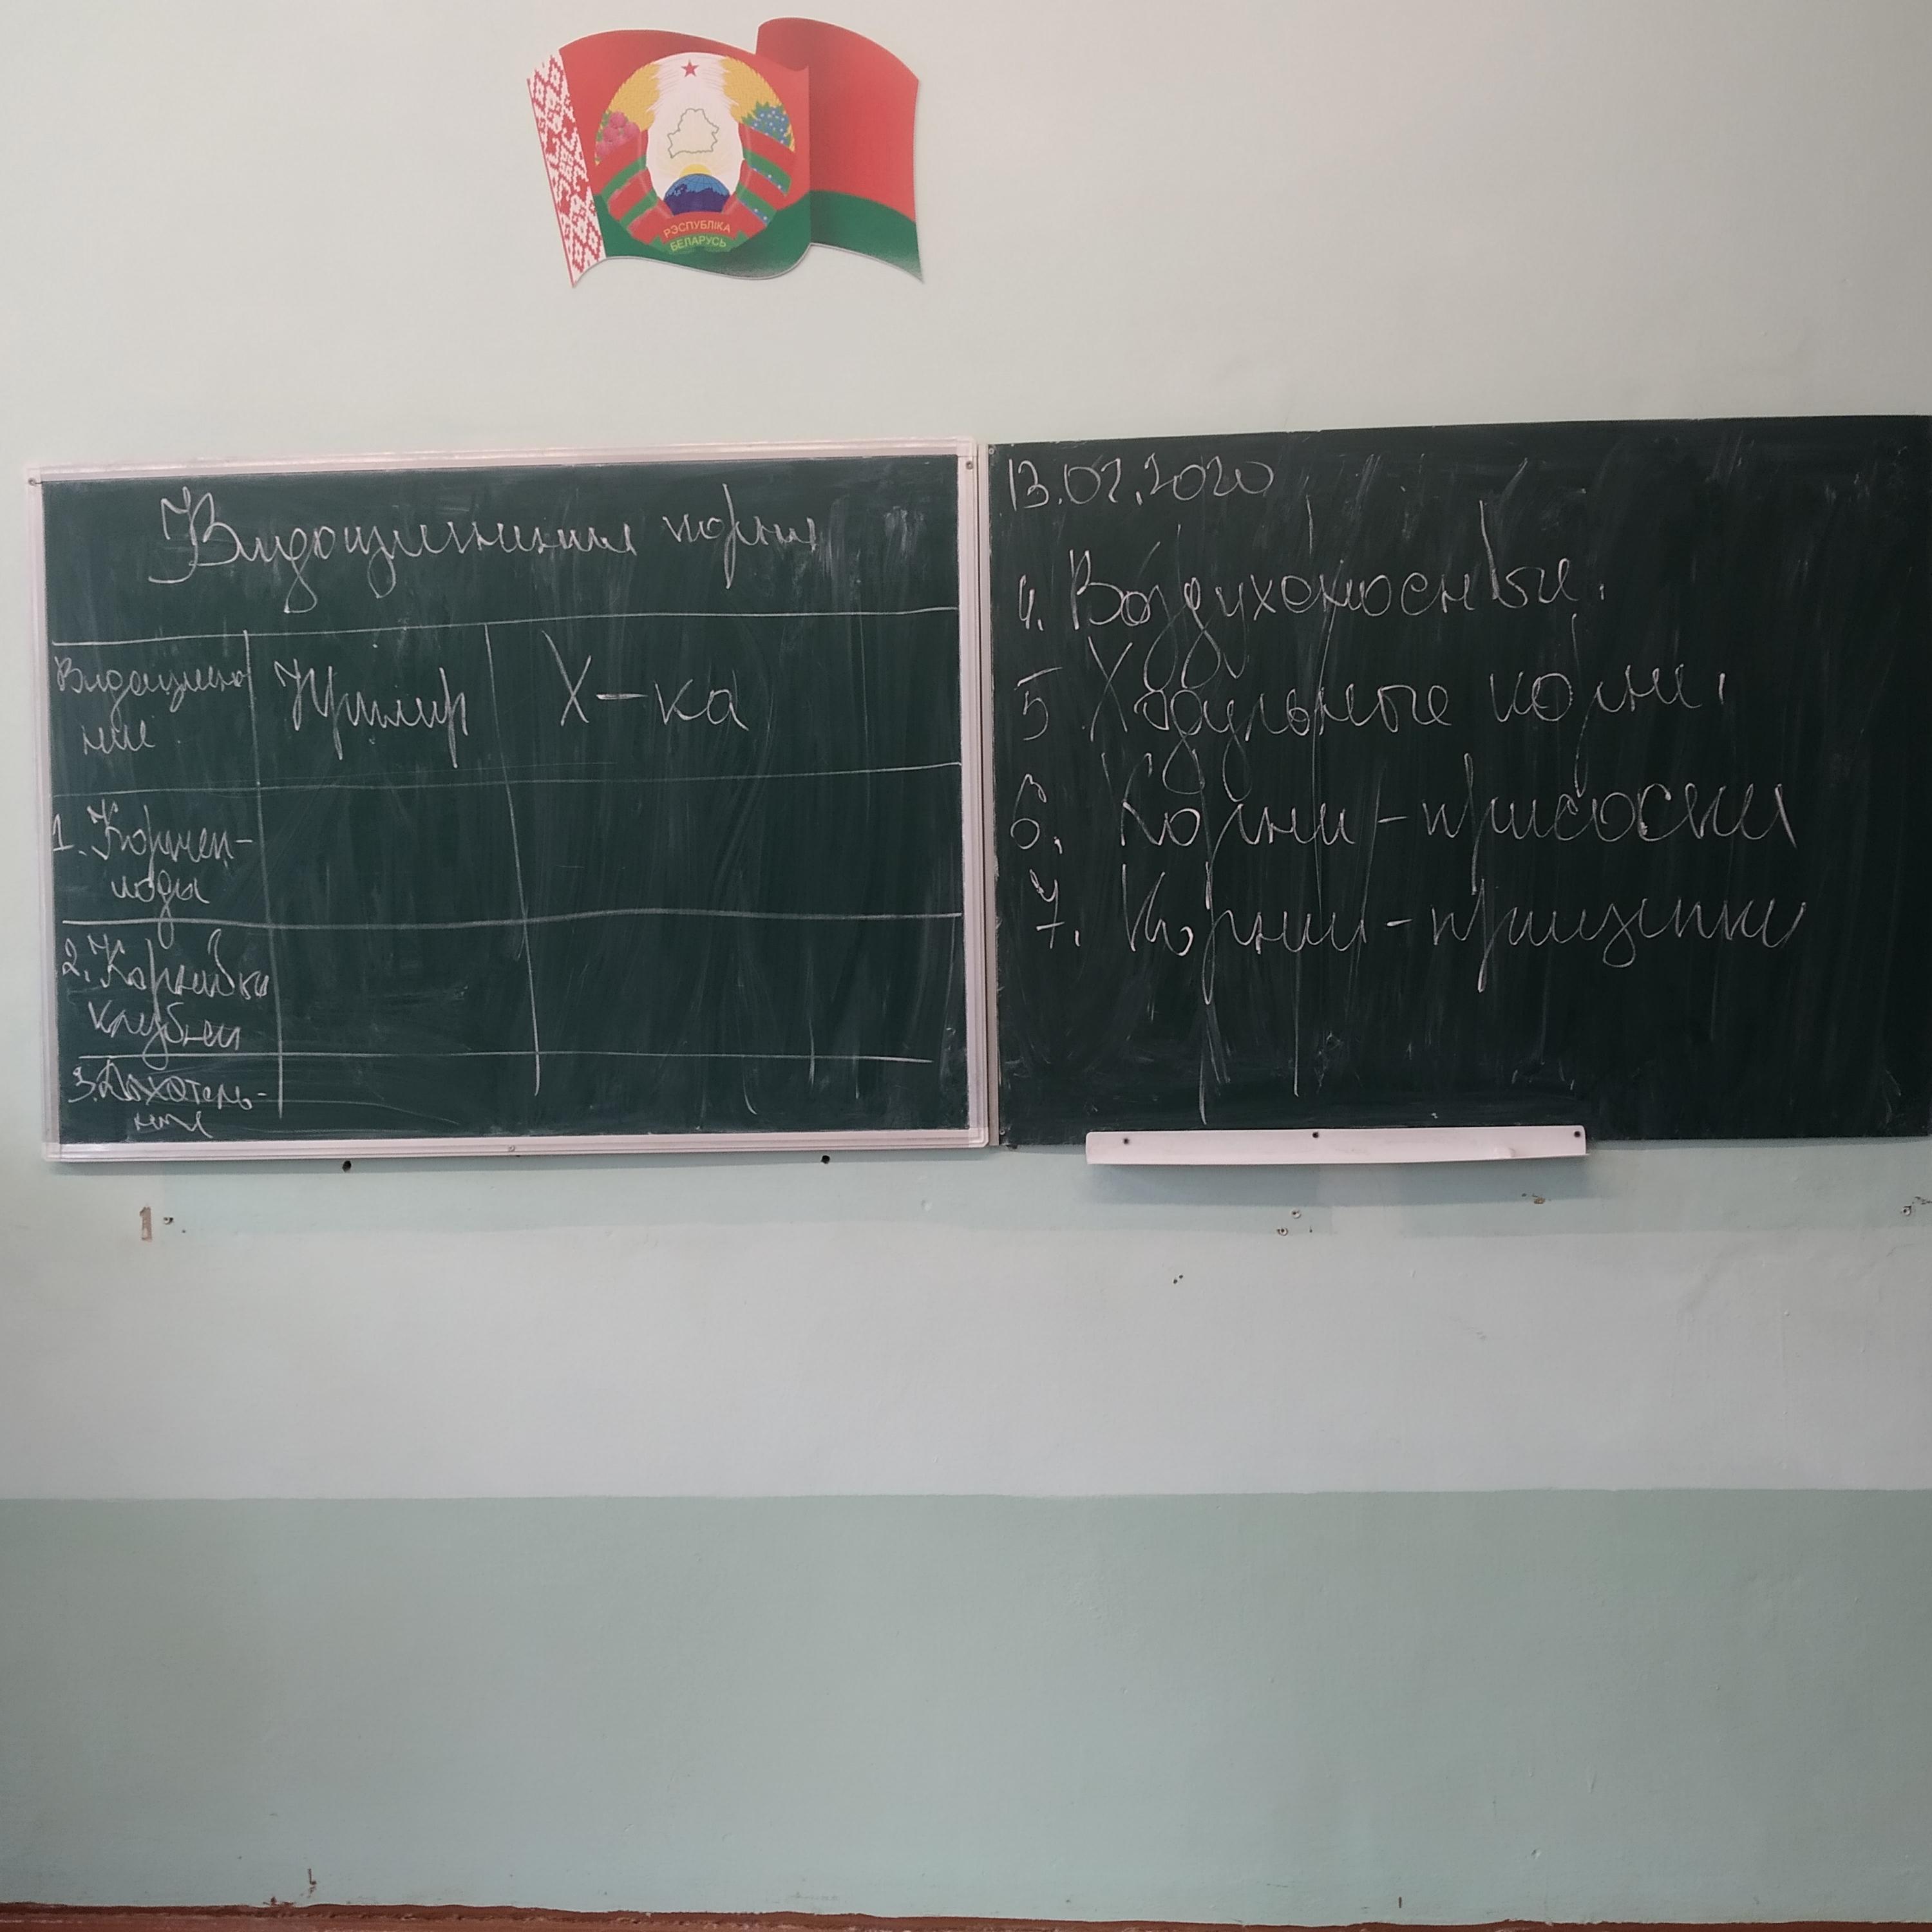 РЭСПУБЛІКА
БЕЛАРУСЬ
Видоизменения корня
Видоизмене
ние
Пример
Х-ка
1. Корнеп-
лоды
2. Корневые
клубни
3. Дыхатель-
ные
13.02.2020
4. Воздухоносные.
5 Ходульные корни.
6. Корни-присоски
7. Корни-прицепки